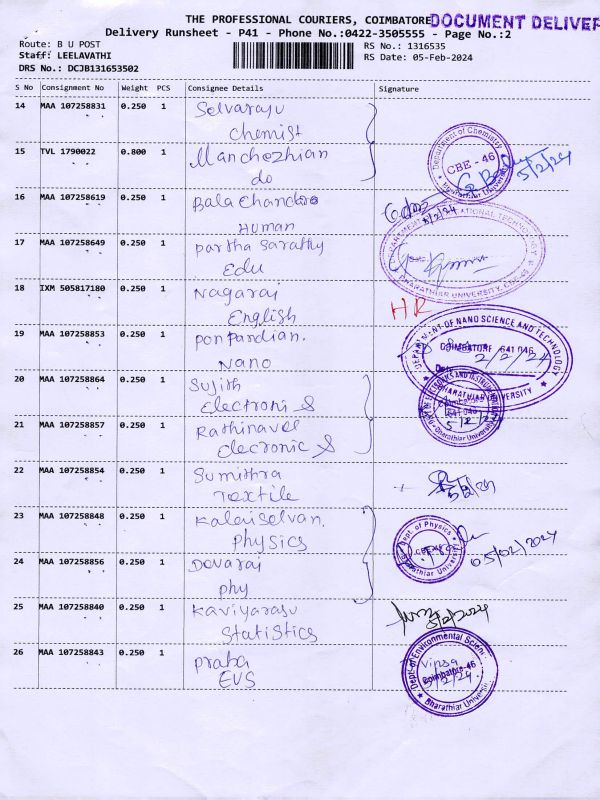 THE PROFESSIONAL COURIERS, COIMBATORE
DOCUMENT DELIVER
Delivery Runsheet - P41 - Phone No.:0422-3505555 - Page No.:2
Route: B U POST
RS No.: 1316535
Staff: LEELAVATHI
RS Date: 05-Feb-2024
DRS No.: DCJB131653502
S No Consignment No Weight PCS Consignee Details Signature
14 MAA 107258831 0.250 1 Selvaraju
Chemist
15 TVL 1790022 0.800 1 Manchozhian
do
Department of Chemistry
CBE - 46
Bharathiar University
5/2/24
16 MAA 107258619 0.250 1 Bala Chandra
HUMAN
5/2/24
17 MAA 107258649 0.250 1 Partha Sarathy
Edu
BHARATHIAR UNIVERSITY, CBE-46
18 IXM 505817180 0.250 1 Nagaraj
English
HR
19 MAA 107258853 0.250 1 ponpandian.
Nano
DEPARTMENT OF NANO SCIENCE AND TECHNOLOGY
COIMBATORE 641 046
2/2/24
Date
BHARATHIAR UNIVERSITY
20 MAA 107258864 0.250 1 Sujith
Electroni S
21 MAA 107258857 0.250 1 Rathinavel
electronic S
641 046
Bharathiar University
22 MAA 107258854 0.250 1 Sumithra
Textile
23 MAA 107258848 0.250 1 Kalaiselvan.
physics
24 MAA 107258856 0.250 1 Devaraj
phy
Dept. of Physics
Bharathiar University
05/02/2024
25 MAA 107258840 0.250 1 Kaviyarasu
Statistics
5/2/2024
26 MAA 107258843 0.250 1 praba
EVS
Dept. of Environmental Scienc
Coimbatore-46
5/2/24
Bharathiar University